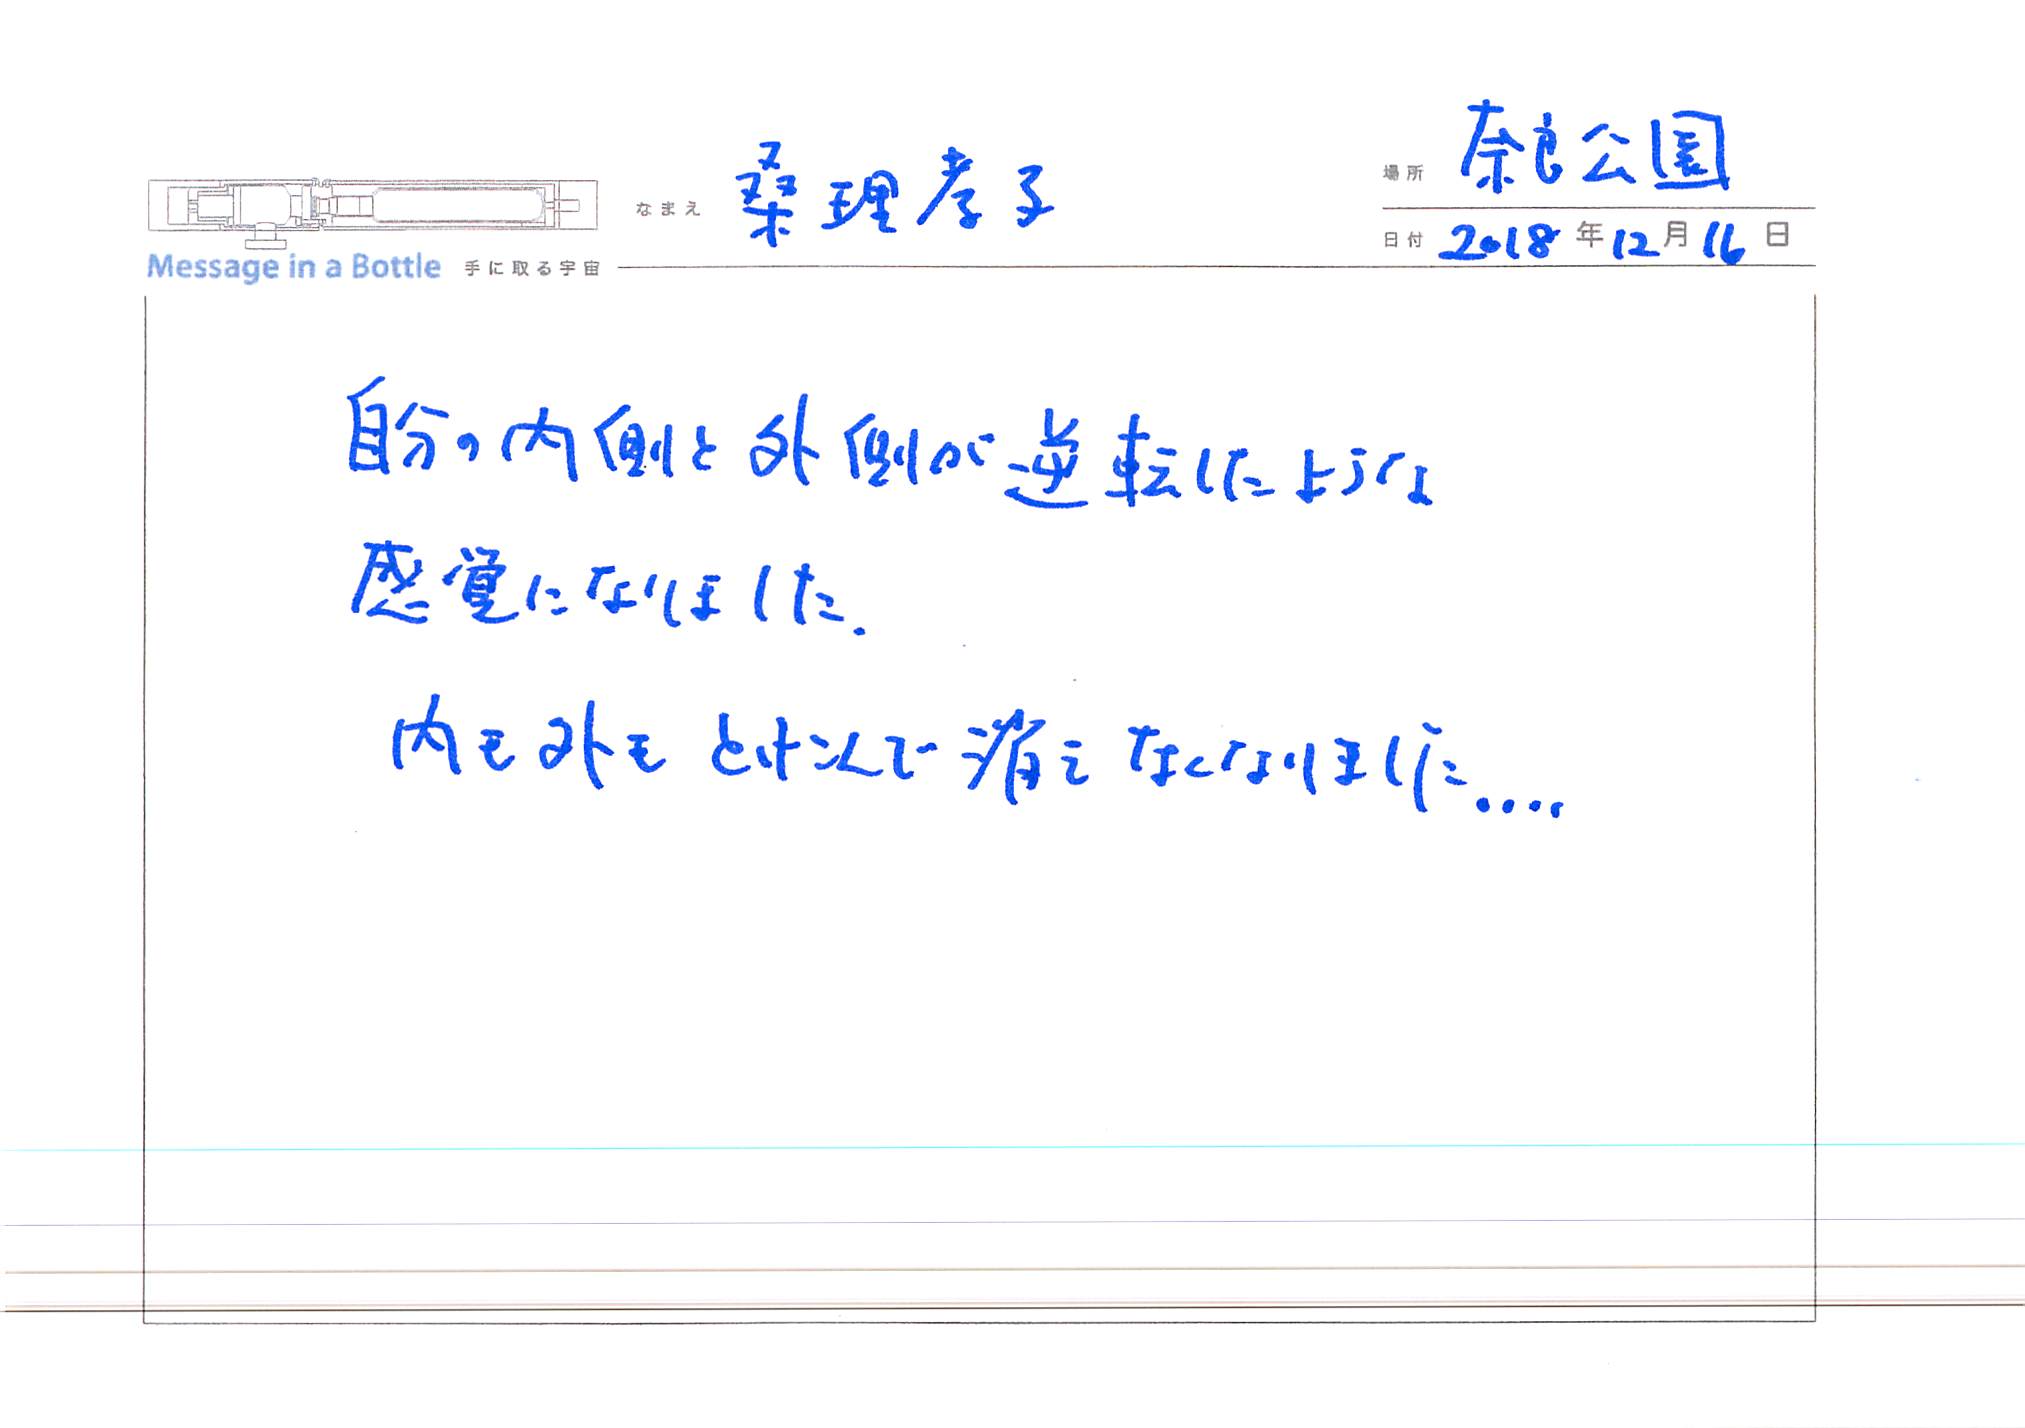 場所 奈良公園
なまえ 桑理孝子
日付 2018年12月16日
Message in a Bottle 手に取る宇宙
自分の内側と外側が逆転したような
感覚になりました.
内も外もとけこんで消えなくなりました....